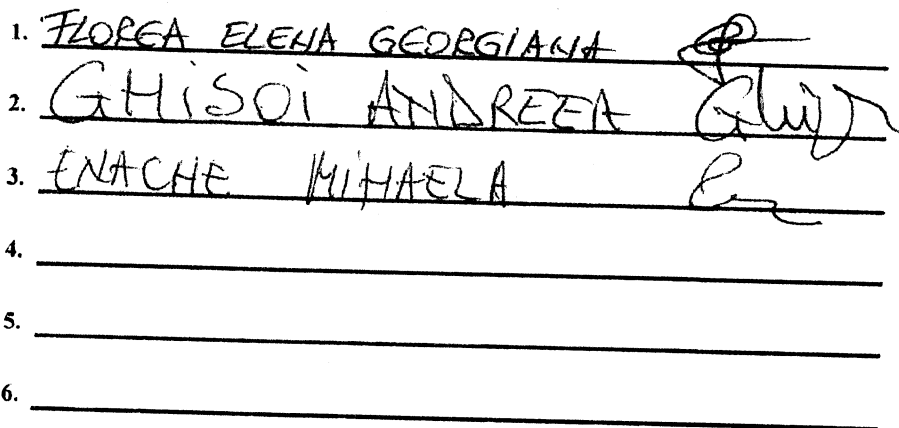 1. FLOREA ELENA GEORGIANA
2. GHiSOi ANDREEA
3. ENACHE MIHAELA
4.
5.
6.